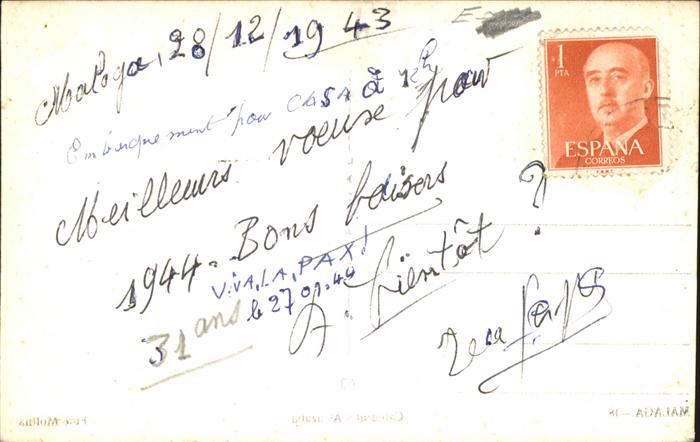 Malaga, 28/12/1943
Embarquement pour CASA à 12h
Meilleurs voeux pour
1944. Bons baisers
ViVA, LA, PAX!
le 27.01.49
A bientôt ?
31 ans
1 PTA
ESPAÑA
CORREOS
MALAGA.-18
Foto Molina